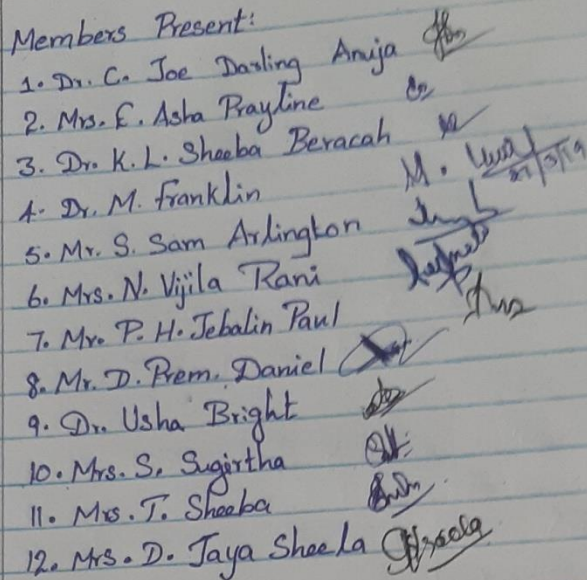 Members Present:
1. Dr. C. Joe Darling Anuja
2. Mrs. E. Asha Prayline
3. Dr. K. L. Sheeba Beracah
4. Dr. M. Franklin M.
5. Mr. S. Sam Arlington
6. Mrs. N. Vijila Rani
7. Mr. P. H. Jebalin Paul
8. Mr. D. Prem. Daniel
9. Dr. Usha Bright
10. Mrs. S. Sugirtha
11. Mrs. T. Sheeba
12. Mrs. D. Jaya Sheela